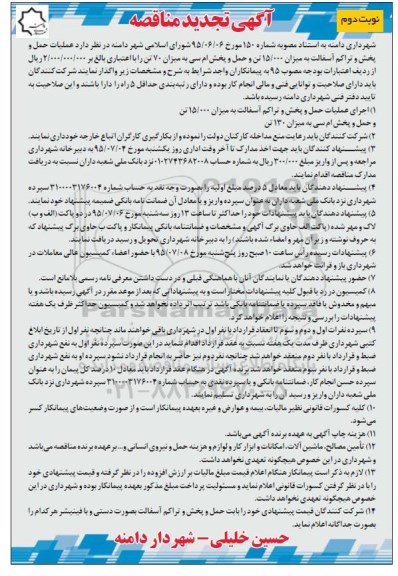 نوبت دوم
آگهی تجدید مناقصه
شهرداری دامنه به استناد مصوبه شماره ۱۵۰ مورخ ۹۵/۰۶/۰۶ شورای اسلامی شهر دامنه در نظر دارد عملیات حمل و
پخش و تراکم آسفالت به میزان ۱۵/۰۰۰ تن و حمل و پخش ام سی به میزان ۷۰ تن را با اعتباری بالغ بر ۲/۰۰۰/۰۰۰/۰۰۰ ریال
از ردیف اعتبارات بودجه مصوب ۹۵ به پیمانکاران واجد شرایط به شرح و مشخصات زیر واگذار نمایند شرکت کنندگان
باید دارای صلاحیت و توانایی فنی و مالی انجام کار بوده و دارای رتبه‌بندی حداقل ۵ راه را دارا باشند و این صلاحیت به
تایید دفتر فنی شهرداری دامنه رسیده باشد.
۱) اجرای عملیات حمل و پخش و تراکم آسفالت به میزان ۱۵/۰۰۰ تن
و حمل و پخش ام سی به میزان ۱۳۰ تن
۲) شرکت کنندگان باید رعایت منع مداخله کارکنان دولت را نموده و از بکارگیری کارگران اتباع خارجه خودداری نمایند.
۳) پیشنهاد کنندگان باید جهت اخذ مدارک تا آخر وقت اداری روز یکشنبه مورخ ۹۵/۰۷/۰۴ به دبیرخانه شهرداری
مراجعه و پس از واریز مبلغ ۳۰۰/۰۰۰ ریال به شماره حساب ۰۱۰۲۷۴۳۶۸۲۰۰۸ نزد بانک ملی شعبه داران نسبت به دریافت
مدارک مناقصه اقدام نمایند.
۴) پیشنهاد دهندگان باید معادل ۵ درصد مبلغ اولیه را بصورت وجه نقد به حساب شماره ۳۱۰۰۰۰۳۱۷۶۰۰۴ سپرده
شهرداری نزد بانک ملی شعبه داران به عنوان سپرده واریز و یا معادل آن ضمانت نامه بانکی ضمیمه پیشنهاد خود نمایند.
۵) پیشنهاد دهندگان باید پیشنهادات خود را حداکثر تا ساعت ۱۳ روز سه‌شنبه مورخ ۹۵/۰۷/۰۶ در دو پاکت (الف و ب)
لاک و مهر شده (پاکت الف حاوی برگ آگهی و مشخصات و ضمانتنامه بانکی پیمانکار و پاکت ب حاوی برگ پیشنهاد که
به حروف نوشته و زیر آن مهر و امضاء شده باشند) را به دبیرخانه شهرداری تحویل و رسید دریافت نمایند.
۶) پیشنهادات رسیده رأس ساعت ۱۰ صبح روز پنج‌شنبه مورخ ۹۵/۰۷/۰۸ با حضور اعضاء کمیسیون عالی معاملات در
شهرداری باز و قرائت خواهد شد.
۷) حضور پیشنهاد دهندگان یا نمایندگان آنان با هماهنگی قبلی و در دست داشتن معرفی نامه رسمی بلامانع است.
۸) کمیسیون در رد یا قبول کلیه پیشنهادات مختار است و به پیشنهاداتی که بعد از موعد مقرر در آگهی رسیده باشد و یا
مبهم و مخدوش یا فاقد سپرده یا ضمانتنامه بانکی باشد ترتیب اثر داده نخواهد شد و کمیسیون حداکثر ظرف یک هفته
پیشنهادات را بررسی و نتیجه را اعلام خواهد کرد.
۹) سپرده نفرات اول و دوم و سوم تا انعقاد قرارداد با نفر اول در شهرداری باقی خواهند ماند چنانچه نفر اول از تاریخ ابلاغ
کتبی شهرداری ظرف مدت یک هفته نسبت به عقد قرارداد اقدام ننماید در این صورت سپرده نفر اول به نفع شهرداری
ضبط و قرارداد با نفر دوم منعقد خواهد شد چنانچه نفر دوم نیز حاضر به انجام قرارداد نشود سپرده او به نفع شهرداری
ضبط و قرارداد با نفر سوم منعقد خواهد شد برنده آگهی در هنگام عقد قرارداد باید معادل ۱۰ درصد کل پیمان را به عنوان
سپرده حسن انجام کار، ضمانتنامه بانکی و یا سپرده نقدی به حساب شماره ۳۱۰۰۰۰۳۱۷۶۰۰۴ سپرده شهرداری نزد بانک
ملی شعبه داران واریز و رسید آن را به شهرداری تسلیم نمایند.
۱۰) کلیه کسورات قانونی نظیر مالیات، بیمه و عوارض و غیره بعهده پیمانکار است و از صورت وضعیت‌های پیمانکار کسر
می‌شود.
۱۱) هزینه چاپ آگهی به عهده برنده آگهی می‌باشد.
۱۲) تأمین مصالح، ماشین آلات، امکانات و ابزار کار و لوازم و هزینه حمل و نیروی انسانی و... برعهده برنده مناقصه می‌باشد
و شهرداری در این خصوص هیچگونه تعهدی نخواهد داشت.
۱۳) لازم به ذکر است پیمانکار هنگام اعلام قیمت مبلغ مالیات بر ارزش افزوده را در نظر گرفته و قیمت پیشنهادی خود
را با در نظر گرفتن کسورات قانونی اعلام نماید و مسئولیت پرداخت مبلغ مذکور بعهده پیمانکار بوده و شهرداری در این
خصوص هیچگونه تعهدی نخواهد داشت.
۱۴) شرکت کنندگان قیمت پیشنهادی خود را بابت حمل و پخش و تراکم آسفالت بصورت دستی و با فینیشر هر کدام را
بصورت جداگانه اعلام نماید.
حسین خلیلی - شهردار دامنه